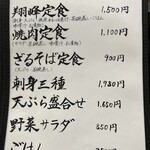 翔峰定食 1,500円
焼肉定食 1,100円
ざるそば定食 900円
刺身三種 1,980円
天ぷら盛合せ 1,650円
野菜サラダ 650円
ごはん